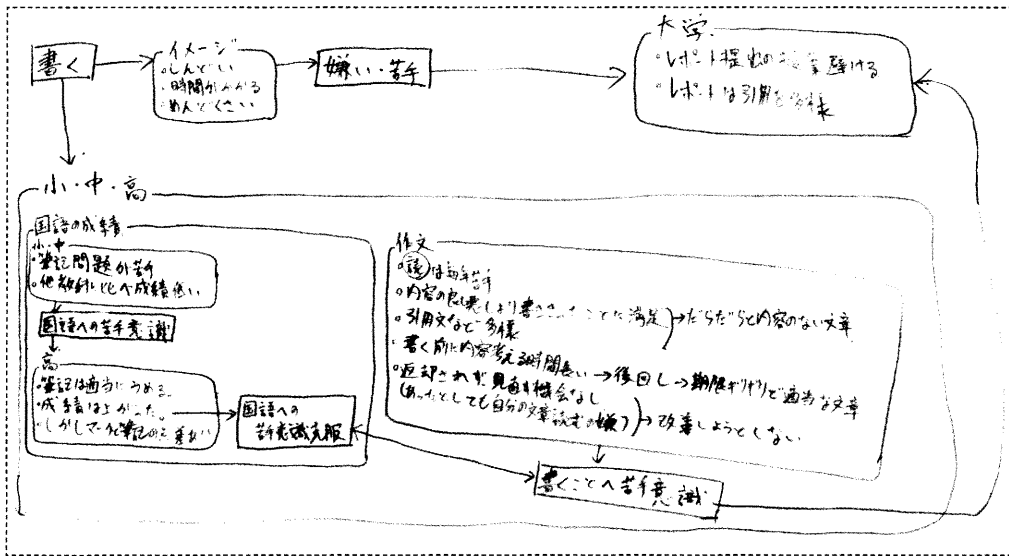 書く
イメージ
・しんどい
・時間がかかる
・めんどくさい
嫌い・苦手
大学
・レポート提出の授業避ける
・レポートは引用を多様
小・中・高
国語の成績
小・中
・筆記問題が苦手
・他教科に比べ成績低い
国語への苦手意識
高
・筆記は適当にうめる。
・成績はよかった。
・しかしマークと筆記の
国語への
苦手意識克服
作文
は毎年苦手
・内容の良し悪しより書き ことに満足 → だらだらと内容のない文章
・引用文など多様
・書く前に内容考える時間長い → 後回し → 期限ギリギリで適当な文章
・返却されず見直す機会なし
(あったとしても自分の文章読むの嫌) → 改善しようとしない
書くことへ苦手意識